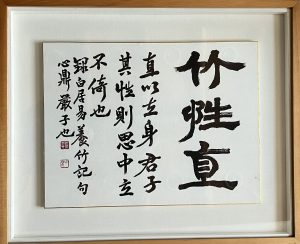 竹性直
直以立身君子
其性則思中立
不倚也
錄白居易養竹記句
心鼎嚴子也